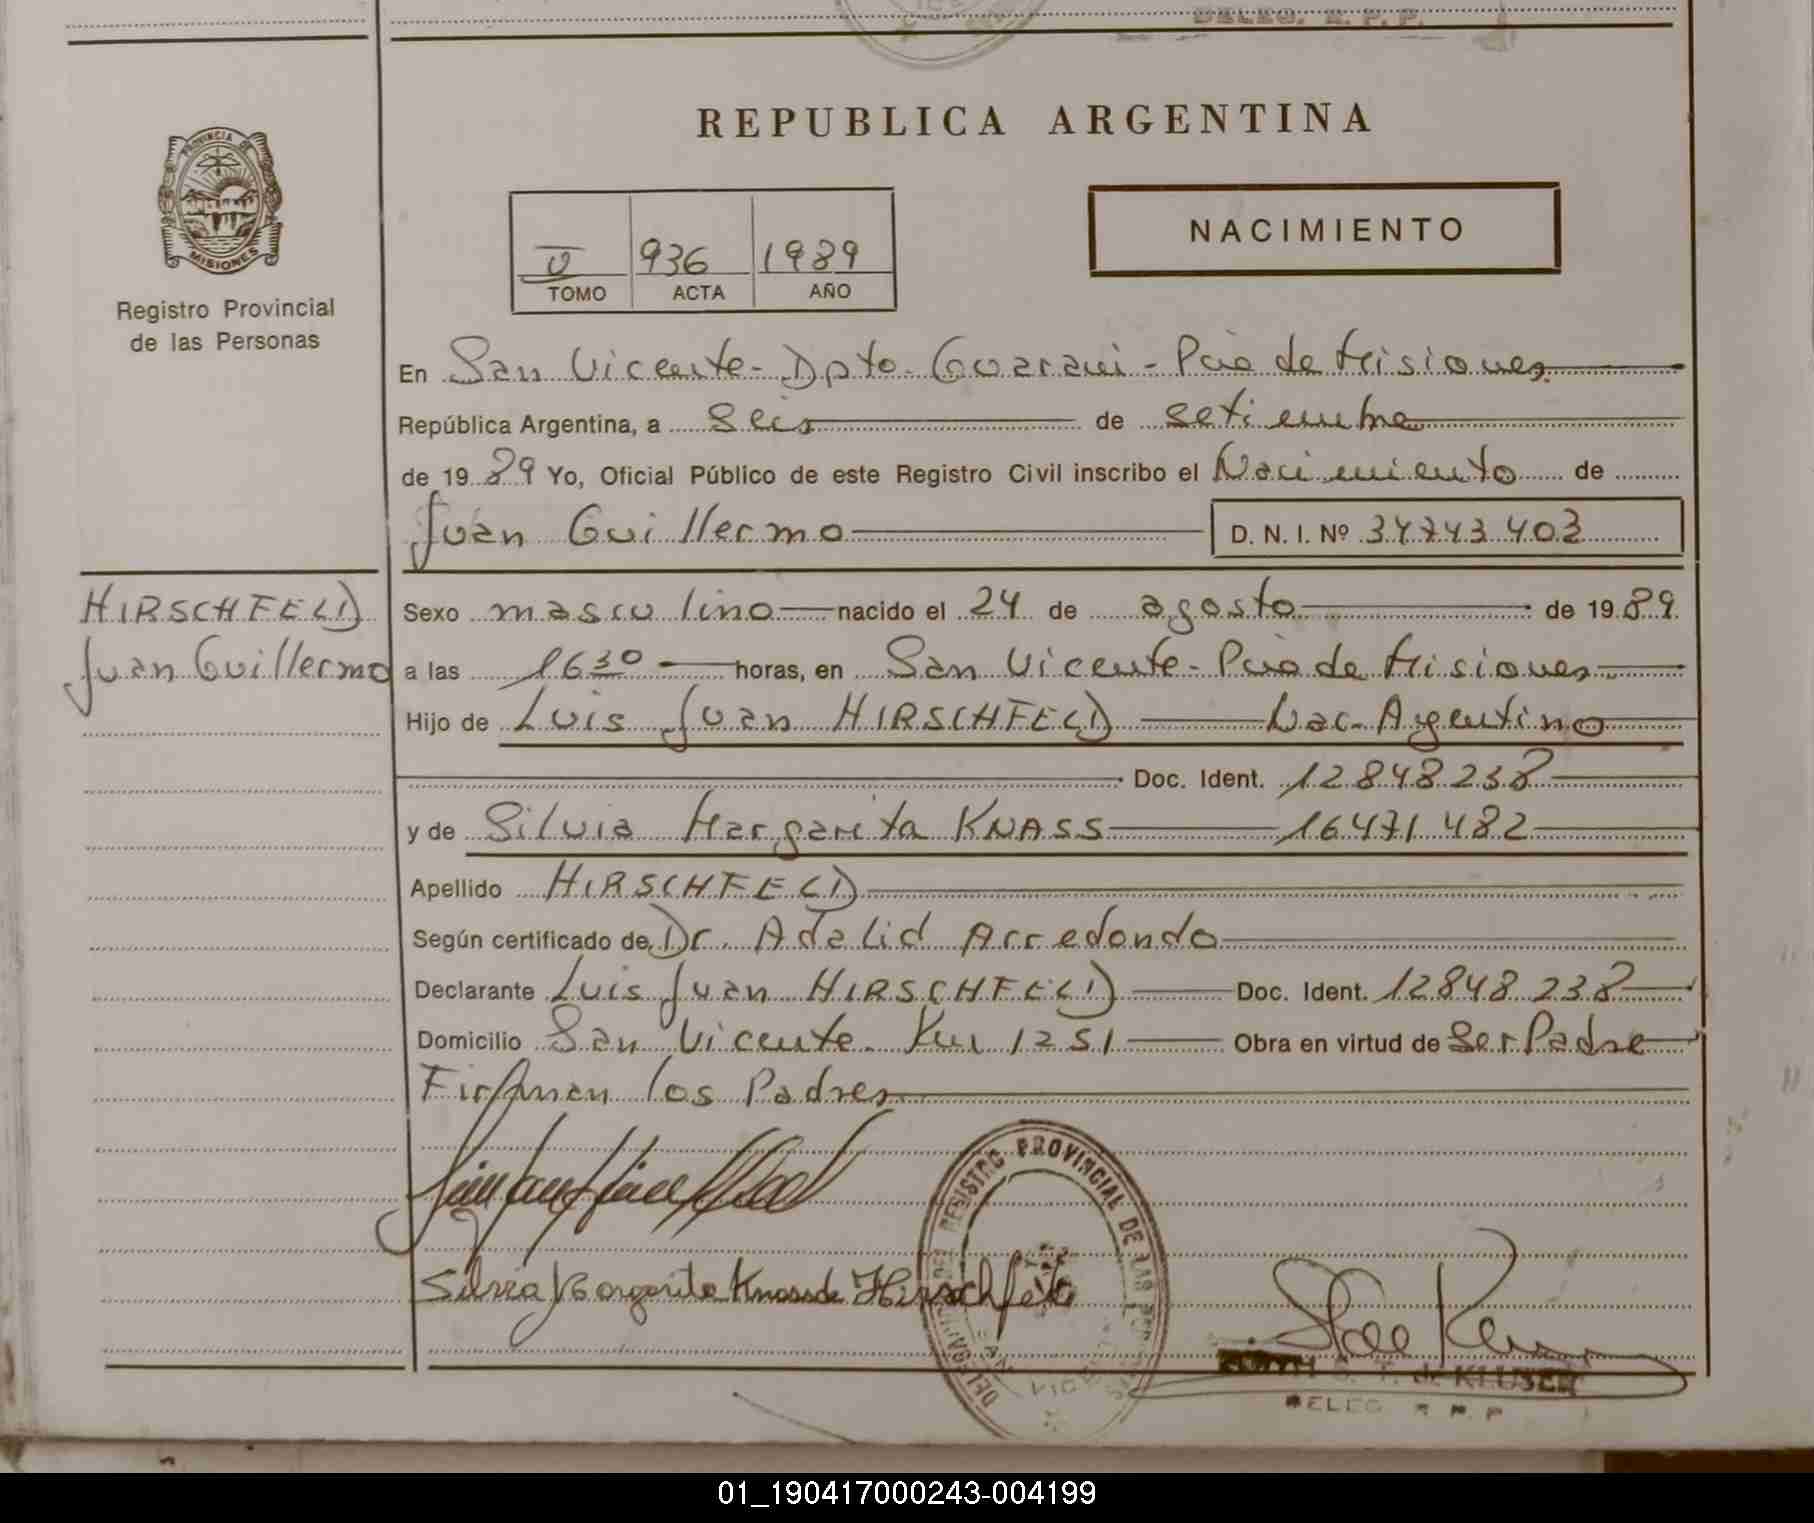 DELEG. R. P. P.
REPUBLICA ARGENTINA
PROVINCIA DE
MISIONES
Registro Provincial
de las Personas
V 936 1989
TOMO ACTA AÑO
NACIMIENTO
En San Vicente - Dpto. Guarani - Pcia de Misiones
República Argentina, a seis de setiembre
de 1989 Yo, Oficial Público de este Registro Civil inscribo el Nacimiento de
Juan Guillermo D. N. I. Nº 34743403
HIRSCHFELD
Juan Guillermo
Sexo masculino nacido el 24 de agosto de 1989
a las 16 30 horas, en San Vicente - Pcia de Misiones
Hijo de Luis Juan HIRSCHFELD Nac. Argentino
Doc. Ident. 12848238
y de Silvia Margarita KNASS 16471482
Apellido HIRSCHFELD
Según certificado de Dr. Adalid Arredondo
Declarante Luis Juan HIRSCHFELD Doc. Ident. 12848238
Domicilio San Vicente. Km 1251 Obra en virtud de Ser Padre
Firman los Padres
Silvia Margarita Knass de Hirschfeld
REGISTRO PROVINCIAL DE LAS
S. T. de KLUSER
DELEG. R. P. P.
01_190417000243-004199